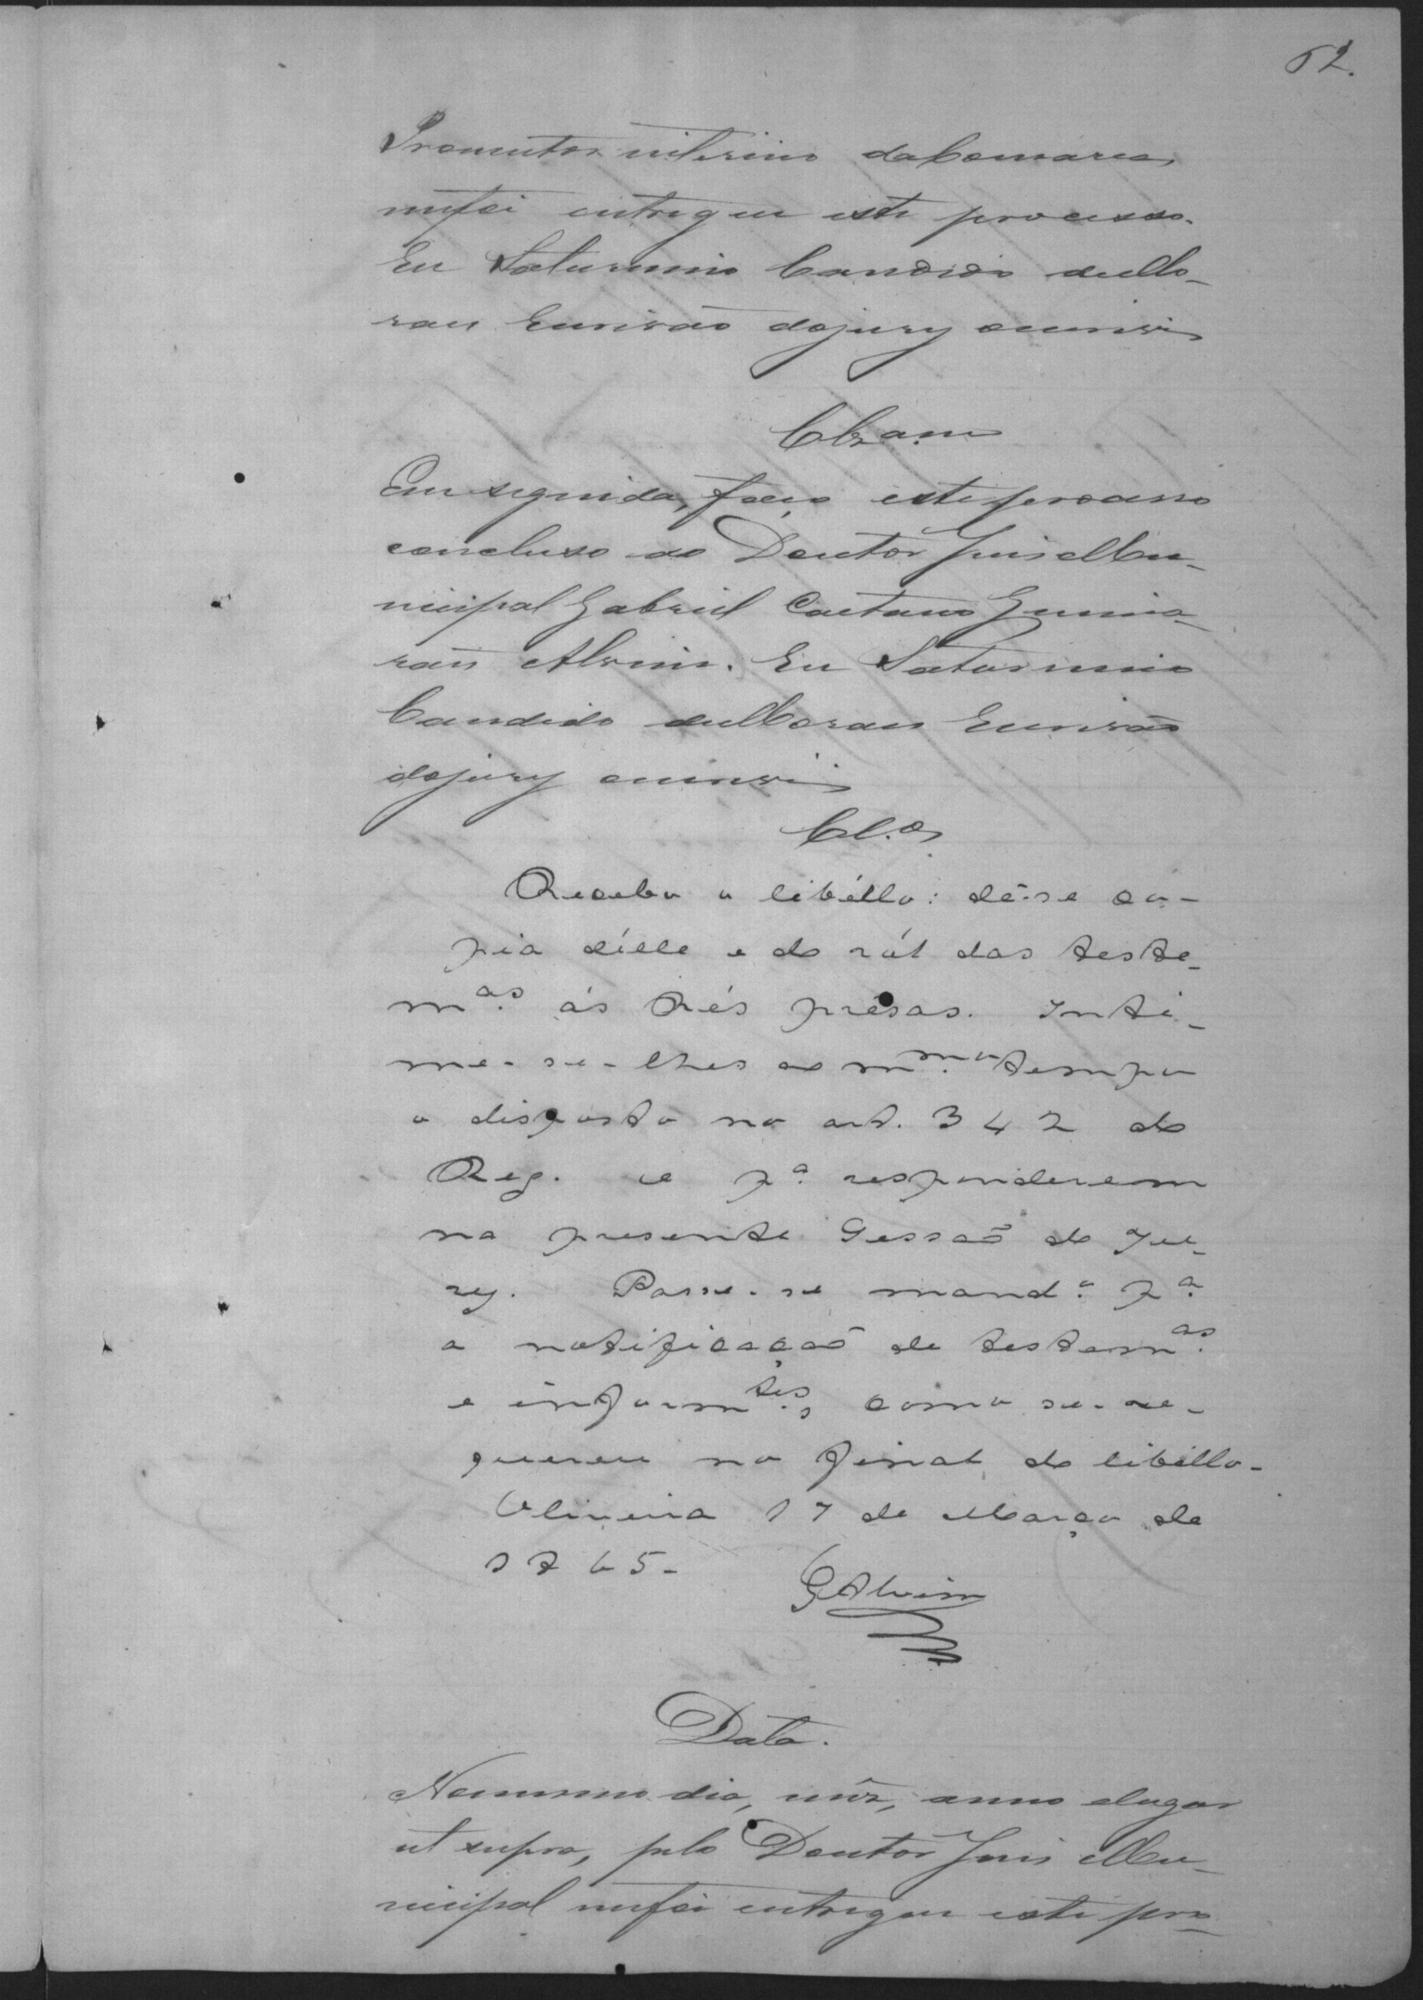 62.
Promutor interino da Comarca,
mefoi entregue este processo.
Eu Saturnino Candido de Mo-
raes Escrivão do jury escrevi
Clzam
Em seguida, faço este processo
concluso ao Doutor Juis Mu-
nicipal Gabriel Caetano Guima-
rães Alvim. Eu Saturnino
Candido de Moraes Escrivão
do jury escrevi
Cl.os
Recebo o libéllo: dê-se co-
pia d'elle e do ról das teste-
m.as ás Rés presas. Inti-
me-se-lhes ao m.mo tempo
o disposto no art. 342 do
Reg. e p.a responderem
na presente Sessaõ do Ju-
ry. Passe-se mand.o p.a
a notificaçaõ de testem.as
e inform.tes, como se-re-
quereu no final do libéllo-
Oliveira 17 de Março de
1865-
GAlvim
Data.
Nomesmo dia, mêz, anno elugar
ut supra, pelo Doutor Juis Mu-
nicipal mefoi entregue este pro-